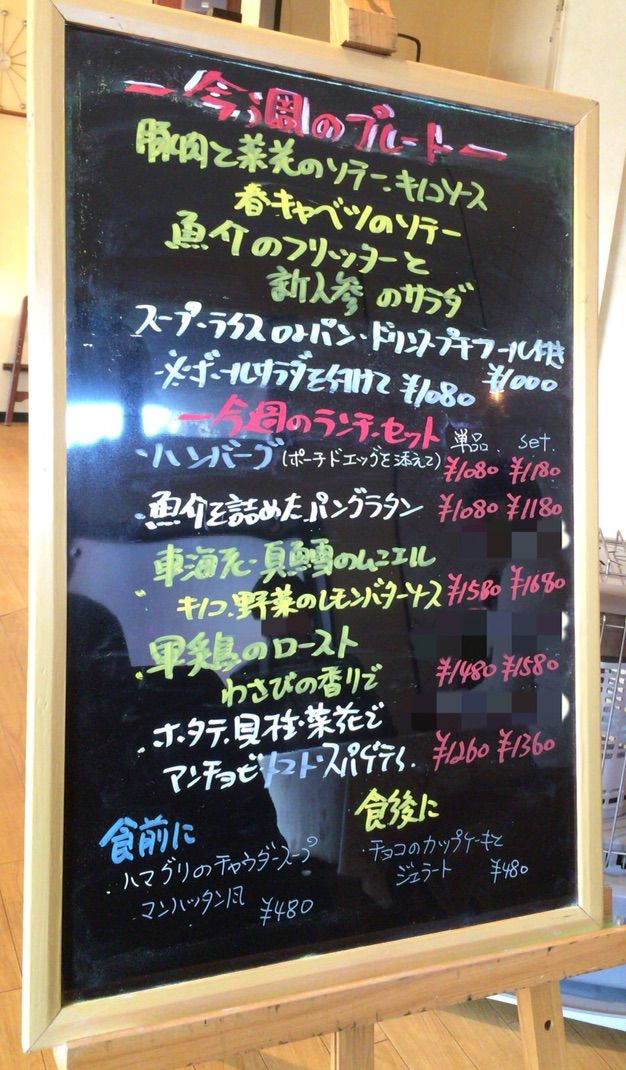 ー今週のプレートー
豚肉と菜花のソテー、キノコソース
春キャベツのソテー
魚介のフリッターと
新人参のサラダ
スープ・ライスorパン・ドリンク・プチデザール付き ¥1000
※ボールサラダを付けて ¥1080
ー今週のランチセット 単品 set.
・ハンバーグ(ポーチドエッグを添えて) ¥1080 ¥1180
・魚介を詰めたパングラタン ¥1080 ¥1180
・車海老・真鯛のムニエル
キノコ、野菜のレモンバターソース ¥1580 ¥1680
・軍鶏のロースト
わさびの香りで ¥1480 ¥1580
・ホタテ貝柱・菜花で
アンチョビトマトスパゲティ ¥1260 ¥1360
食前に
・ハマグリのチャウダースープ
マンハッタン風 ¥480
食後に
・チョコのカップケーキと
ジェラート ¥480